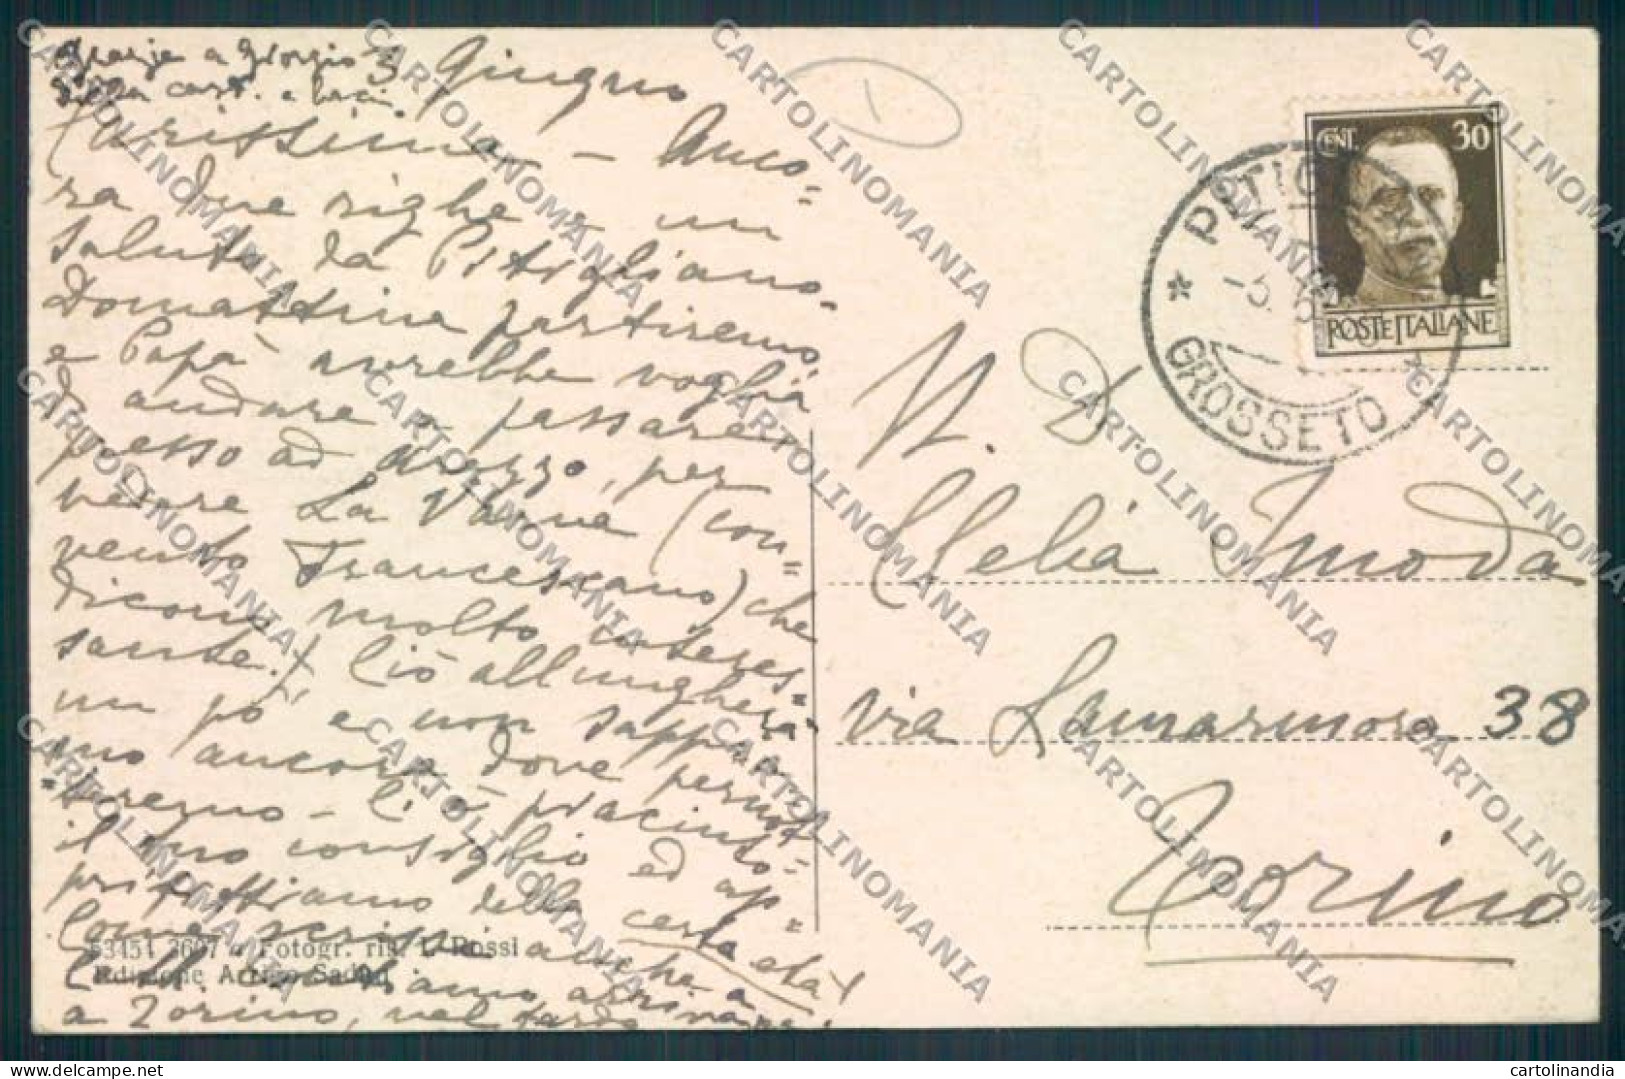 Grazie a Giorgio
della cart. e baci
3 Giugno
Carissima - Anco=
ra due righe e un
saluto da Pitigliano.
Domattina partiremo
e Papà avrebbe voglia
d'andare a passare
presso ad Arezzo, per
vedere La Verna (con=
vento Francescano) che
dicono molto interes=
sante! Ciò allungherà
un pò e non sappia=
mo ancora dove pernot=
teremo - Ci è piaciuto
il tuo consiglio ed ap=
profittiamo della certa età!
Come scrissi anche a
a Torino, nel tardo
53451 3697 Fotogr. ris. L. Rossi
Edizione Arrigo Sadun
CENT. 30
POSTE ITALIANE
PITIGLIANO
GROSSETO
N. D.
Clelia Imoda
via Lamarmora 38
Torino
CARTOLINOMANIA
cartolinandia